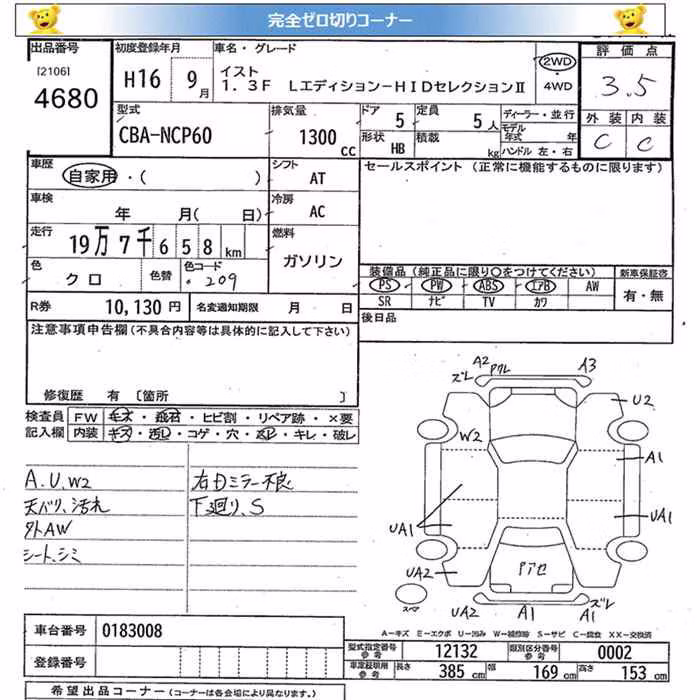 完全ゼロ切りコーナー
出品番号 初度登録年月 車名・グレード 評価点
[2106] H16 9月 イスト 2WD
4680 1.3F LエディションーHIDセレクションⅡ 4WD 3.5
型式 排気量 ドア 5 定員 5人 ディーラー・並行 外装 内装
CBA-NCP60 1300cc 形状 HB 積載 kg モデル年式 年 C C
ハンドル 左・右
車歴 自家用・( ) シフト AT セールスポイント (正常に機能するものに限ります)
車検 年 月( 日) 冷房 AC
走行 19万7千658km 燃料 ガソリン
色 クロ 色替 色コード 209 装備品(純正品に限り○をつけてください) 新車保証書
PS PW ABS エアB AW 有・無
SR ナビ TV カワ
R券 10,130円 名変通知期限 月 日 後日品
注意事項申告欄(不具合内容等は具体的に記入して下さい)
修復歴 有 [箇所 ]
検査員 FW キズ・飛石・ヒビ割・リペア跡・×要
記入欄 内装 キズ・汚レ・コゲ・穴・
・キレ・破レ
A2
ズレ
A3
U2
W2
A1
A.U.W2 右Dミラー不良
天バリ、汚れ 下廻り、S
外AW
シート、シミ
UA1
UA1
UA2
UA2
スペア
UA2 A1 A1 ズレ
車台番号 0183008
登録番号
A-キズ E-エクボ U-凹み W-補修跡 S-サビ C-腐食 XX-交換済
型式指定番号 参考 12132 類別区分番号 参考 0002
車定証明用 参考 長さ 385cm 幅 169cm 高さ 153cm
希望出品コーナー(コーナーは各会場により異なります。)